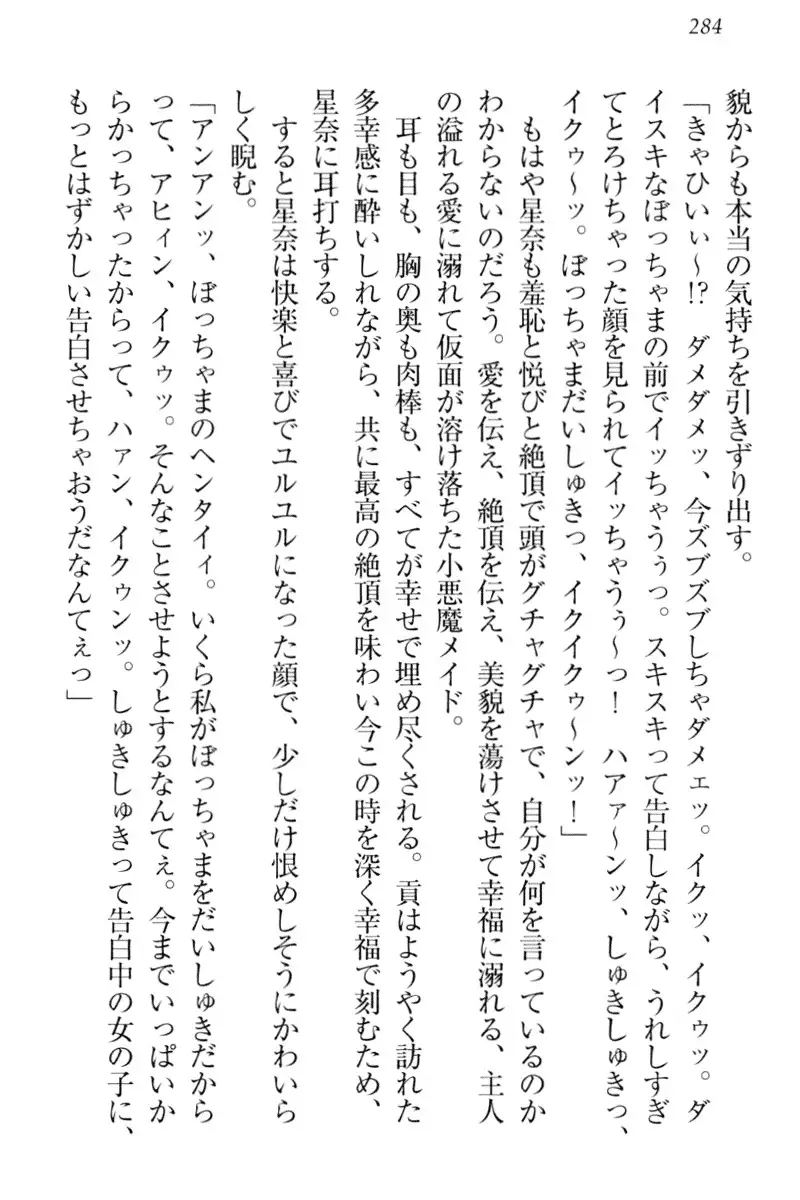 284
貌からも本当の気持ちを引きずり出す。
「きゃひいぃ～!?　ダメダメッ、今ズブズブしちゃダメェッ。イクッ、イクゥッ。ダ
イスキなぼっちゃまの前でイッちゃうぅっ。スキスキって告白しながら、うれしすぎ
てとろけちゃった顔を見られてイッちゃうぅ～っ！　ハアァ～ンッ、しゅきしゅきっ、
イクゥ～ッ。ぼっちゃまだいしゅきっ、イクイクゥ～ンッ！」
もはや星奈も羞恥と悦びと絶頂で頭がグチャグチャで、自分が何を言っているのか
わからないのだろう。愛を伝え、絶頂を伝え、美貌を蕩けさせて幸福に溺れる、主人
の溢れる愛に溺れて仮面が溶け落ちた小悪魔メイド。
耳も目も、胸の奥も肉棒も、すべてが幸せで埋め尽くされる。貢はようやく訪れた
多幸感に酔いしれながら、共に最高の絶頂を味わい今この時を深く幸福で刻むため、
星奈に耳打ちする。
すると星奈は快楽と喜びでユルユルになった顔で、少しだけ恨めしそうにかわいら
しく睨む。
「アンアンッ、ぼっちゃまのヘンタイィ。いくら私がぼっちゃまをだいしゅきだから
って、アヒィン、イクゥッ。そんなことさせようとするなんてぇ。今までいっぱいか
らかっちゃったからって、ハァン、イクゥンッ。しゅきしゅきって告白中の女の子に、
もっとはずかしい告白させちゃおうだなんてぇっ」